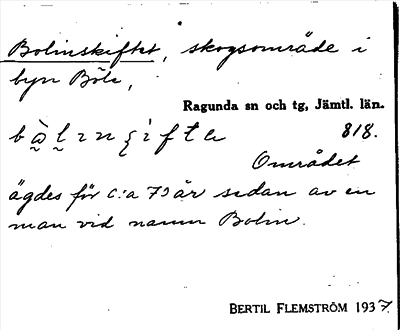 Bolinskiftet, skogsområde i
byn Böle,
Ragunda sn och tg, Jämtl. län.
818.
Området
ägdes för c:a 75 år sedan av en
man vid namn Bolin.
BERTIL FLEMSTRÖM 1937.